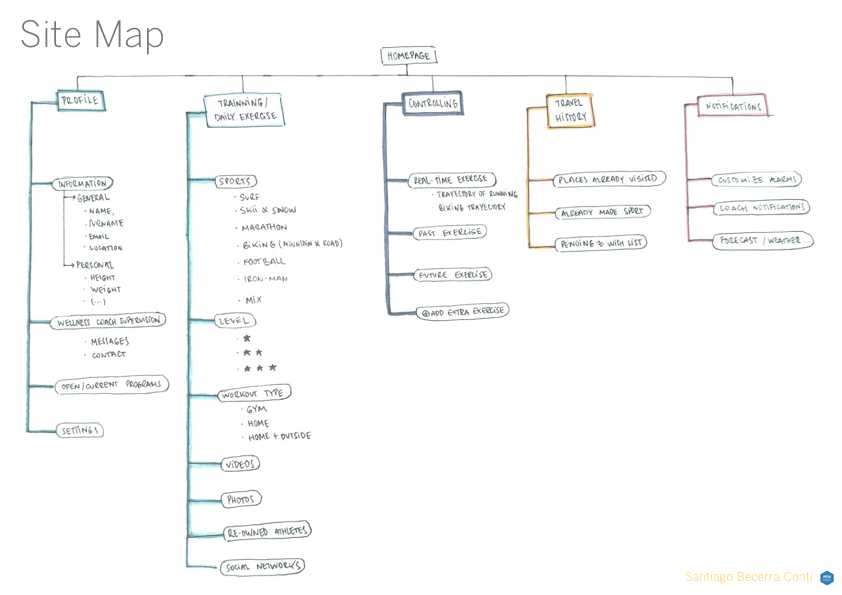 Site Map
HOMEPAGE
PROFILE
INFORMATION
GENERAL
· NAME,
· SURNAME
· EMAIL
· LOCATION
PERSONAL
· HEIGHT
· WEIGHT
· (...)
WELLNESS COACH SUPERVISION
· MESSAGES
· CONTACT
OPEN/CURRENT PROGRAMS
SETTINGS
TRAINNING/
DAILY EXERCISE
SPORTS
· SURF
· SKII & SNOW
· MARATHON
· BIKING (MOUNTAIN & ROAD)
· FOOTBALL
· IRON-MAN
· MIX
LEVEL
· ★
· ★ ★
· ★ ★ ★
WORKOUT TYPE
· GYM
· HOME
· HOME + OUTSIDE
VIDEOS
PHOTOS
RE-OWNED ATHLETES
SOCIAL NETWORKS
CONTROLLING
REAL-TIME EXERCISE
· TRAYECTORY OF RUNNING
· BIKING TRAYECTORY
PAST EXERCISE
FUTURE EXERCISE
⊕ ADD EXTRA EXERCISE
TRAVEL
HISTORY
PLACES ALREADY VISITED
ALREADY MADE SPORT
PENDING & WISH LIST
NOTIFICATIONS
CUSTOMIZE ALARMS
COACH NOTIFICATIONS
FORECAST / WEATHER...
Santiago Becerra Conti